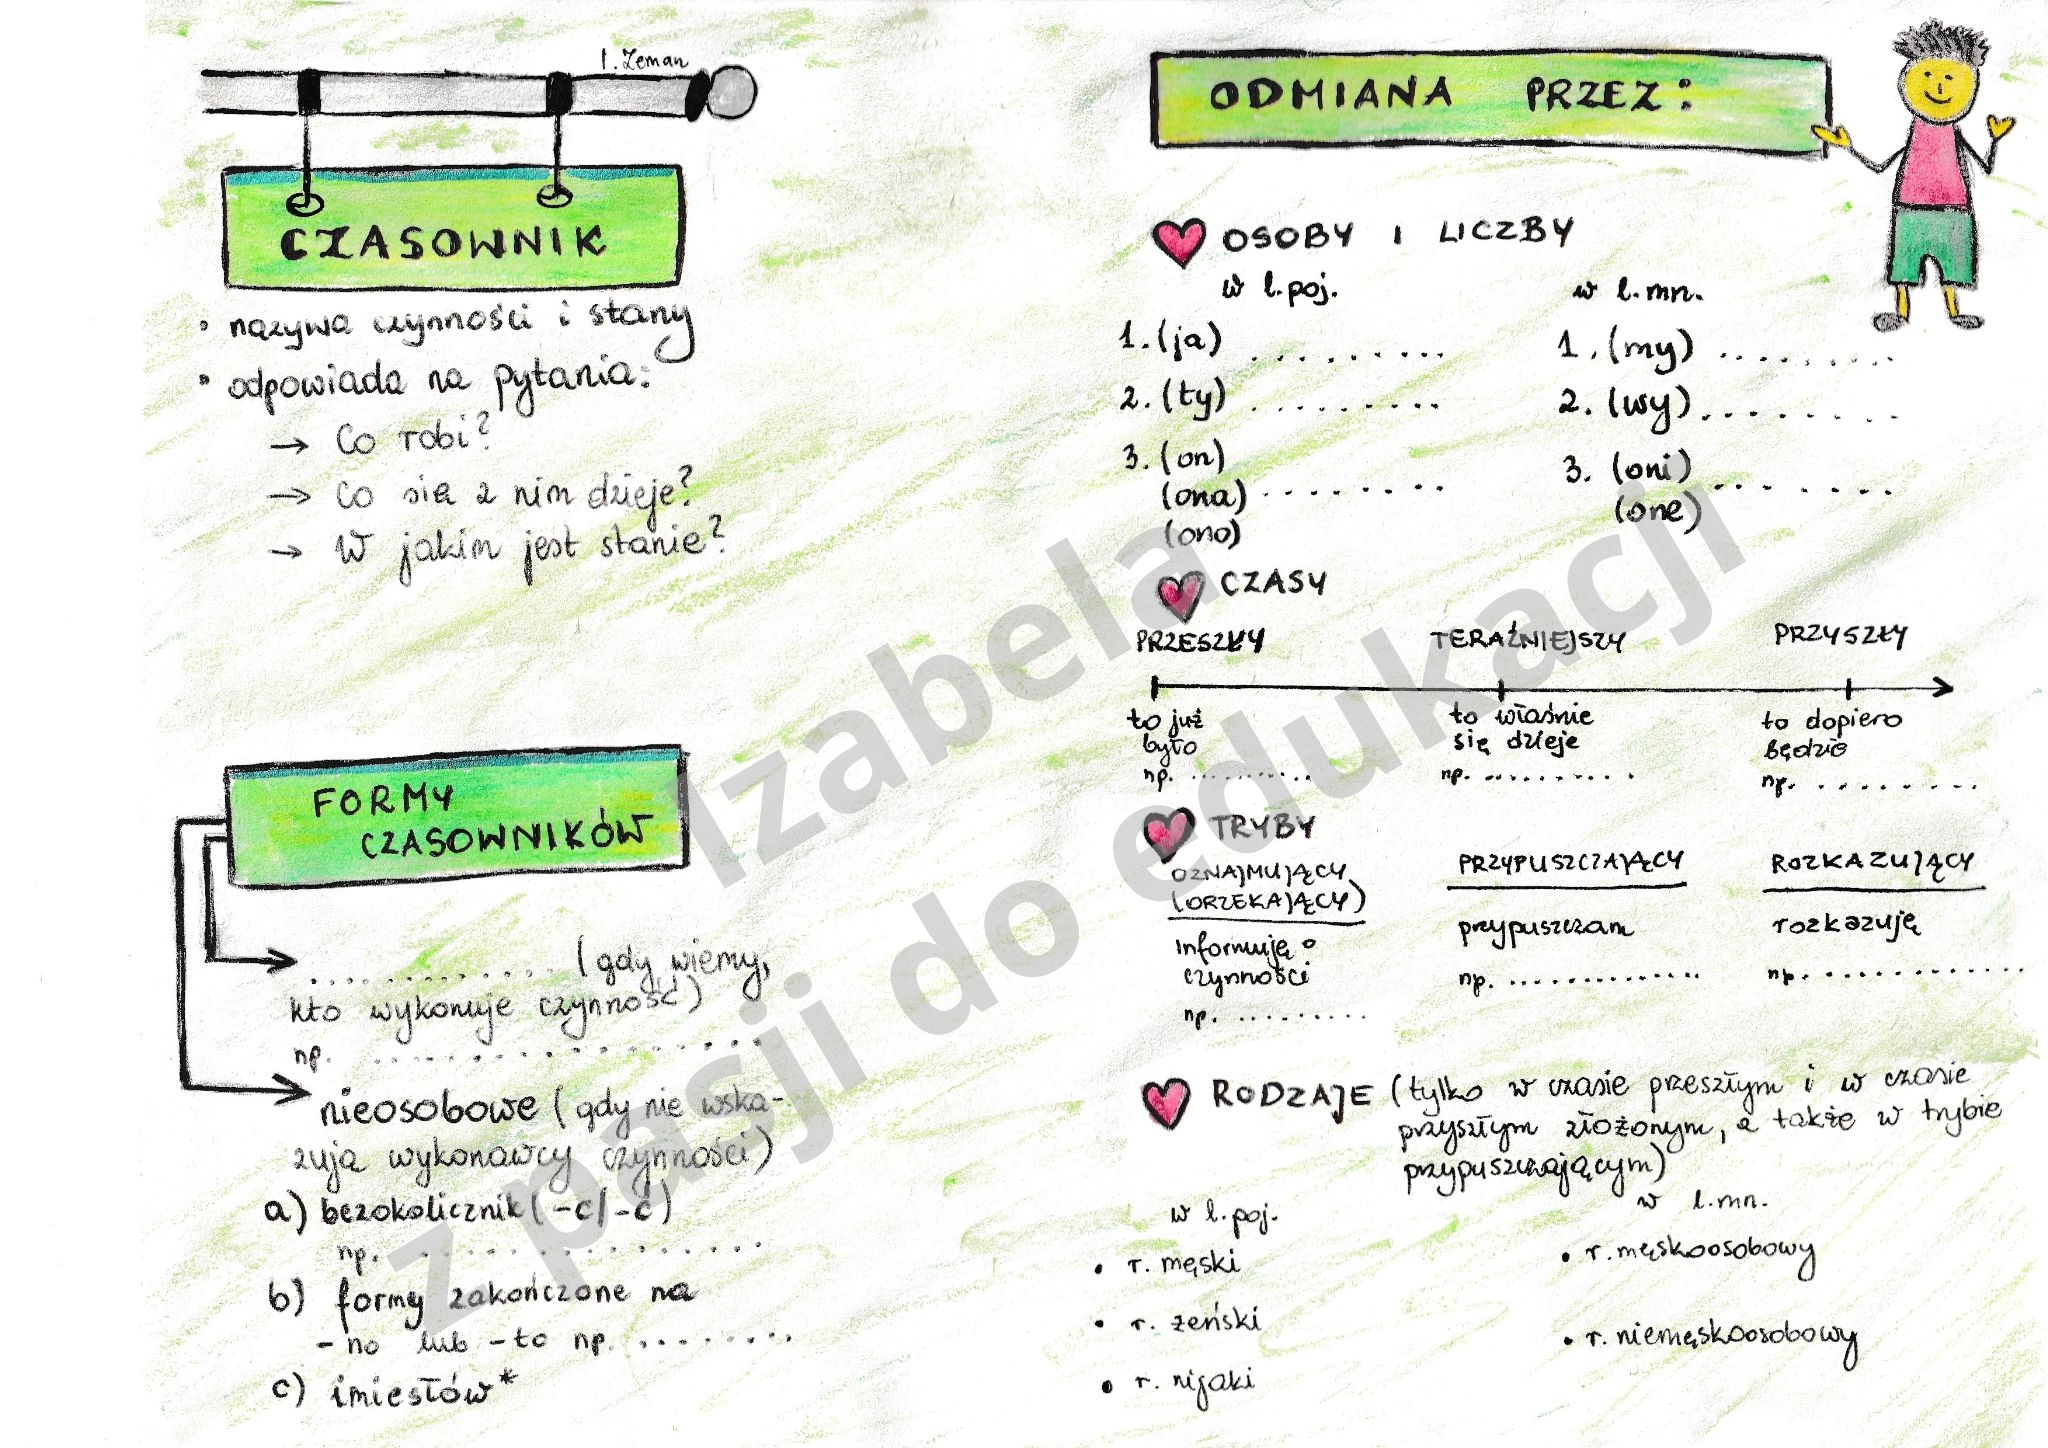 I. Zeman
CZASOWNIK
• nazywa czynności i stany
• odpowiada na pytania:
→ Co robi?
→ Co się z nim dzieje?
→ W jakim jest stanie?
FORMY
CZASOWNIKÓW
............ (gdy wiemy,
kto wykonuje czynność)
np. ..................
nieosobowe (gdy nie wska-
zują wykonawcy czynności)
a) bezokolicznik (-c/-ć)
np. ................
b) formy zakończone na
-no lub -to np. ........
c) imiesłów*
ODMIANA PRZEZ:
OSOBY I LICZBY
w l.poj. w l.mn.
1. (ja) ......... 1. (my) .........
2. (ty) ......... 2. (wy) .........
3. (on) 3. (oni)
(ona) ......... (one) .........
(ono)
CZASY
PRZESZŁY TERAŹNIEJSZY PRZYSZŁY
to już to właśnie to dopiero
było się dzieje będzie
np. .......... np. .......... np. .........
TRYBY
OZNAJMUJĄCY PRZYPUSZCZAJĄCY ROZKAZUJĄCY
(ORZEKAJĄCY)
informuję o przypuszczam rozkazuję
czynności
np. ......... np. ............. np. .............
RODZAJE (tylko w czasie przeszłym i w czasie
przyszłym złożonym, a także w trybie
przypuszczającym)
w l.poj. w l.mn.
• r. męski • r. męskoosobowy
• r. żeński • r. niemęskoosobowy
• r. nijaki
Izabela
z pasji do edukacji